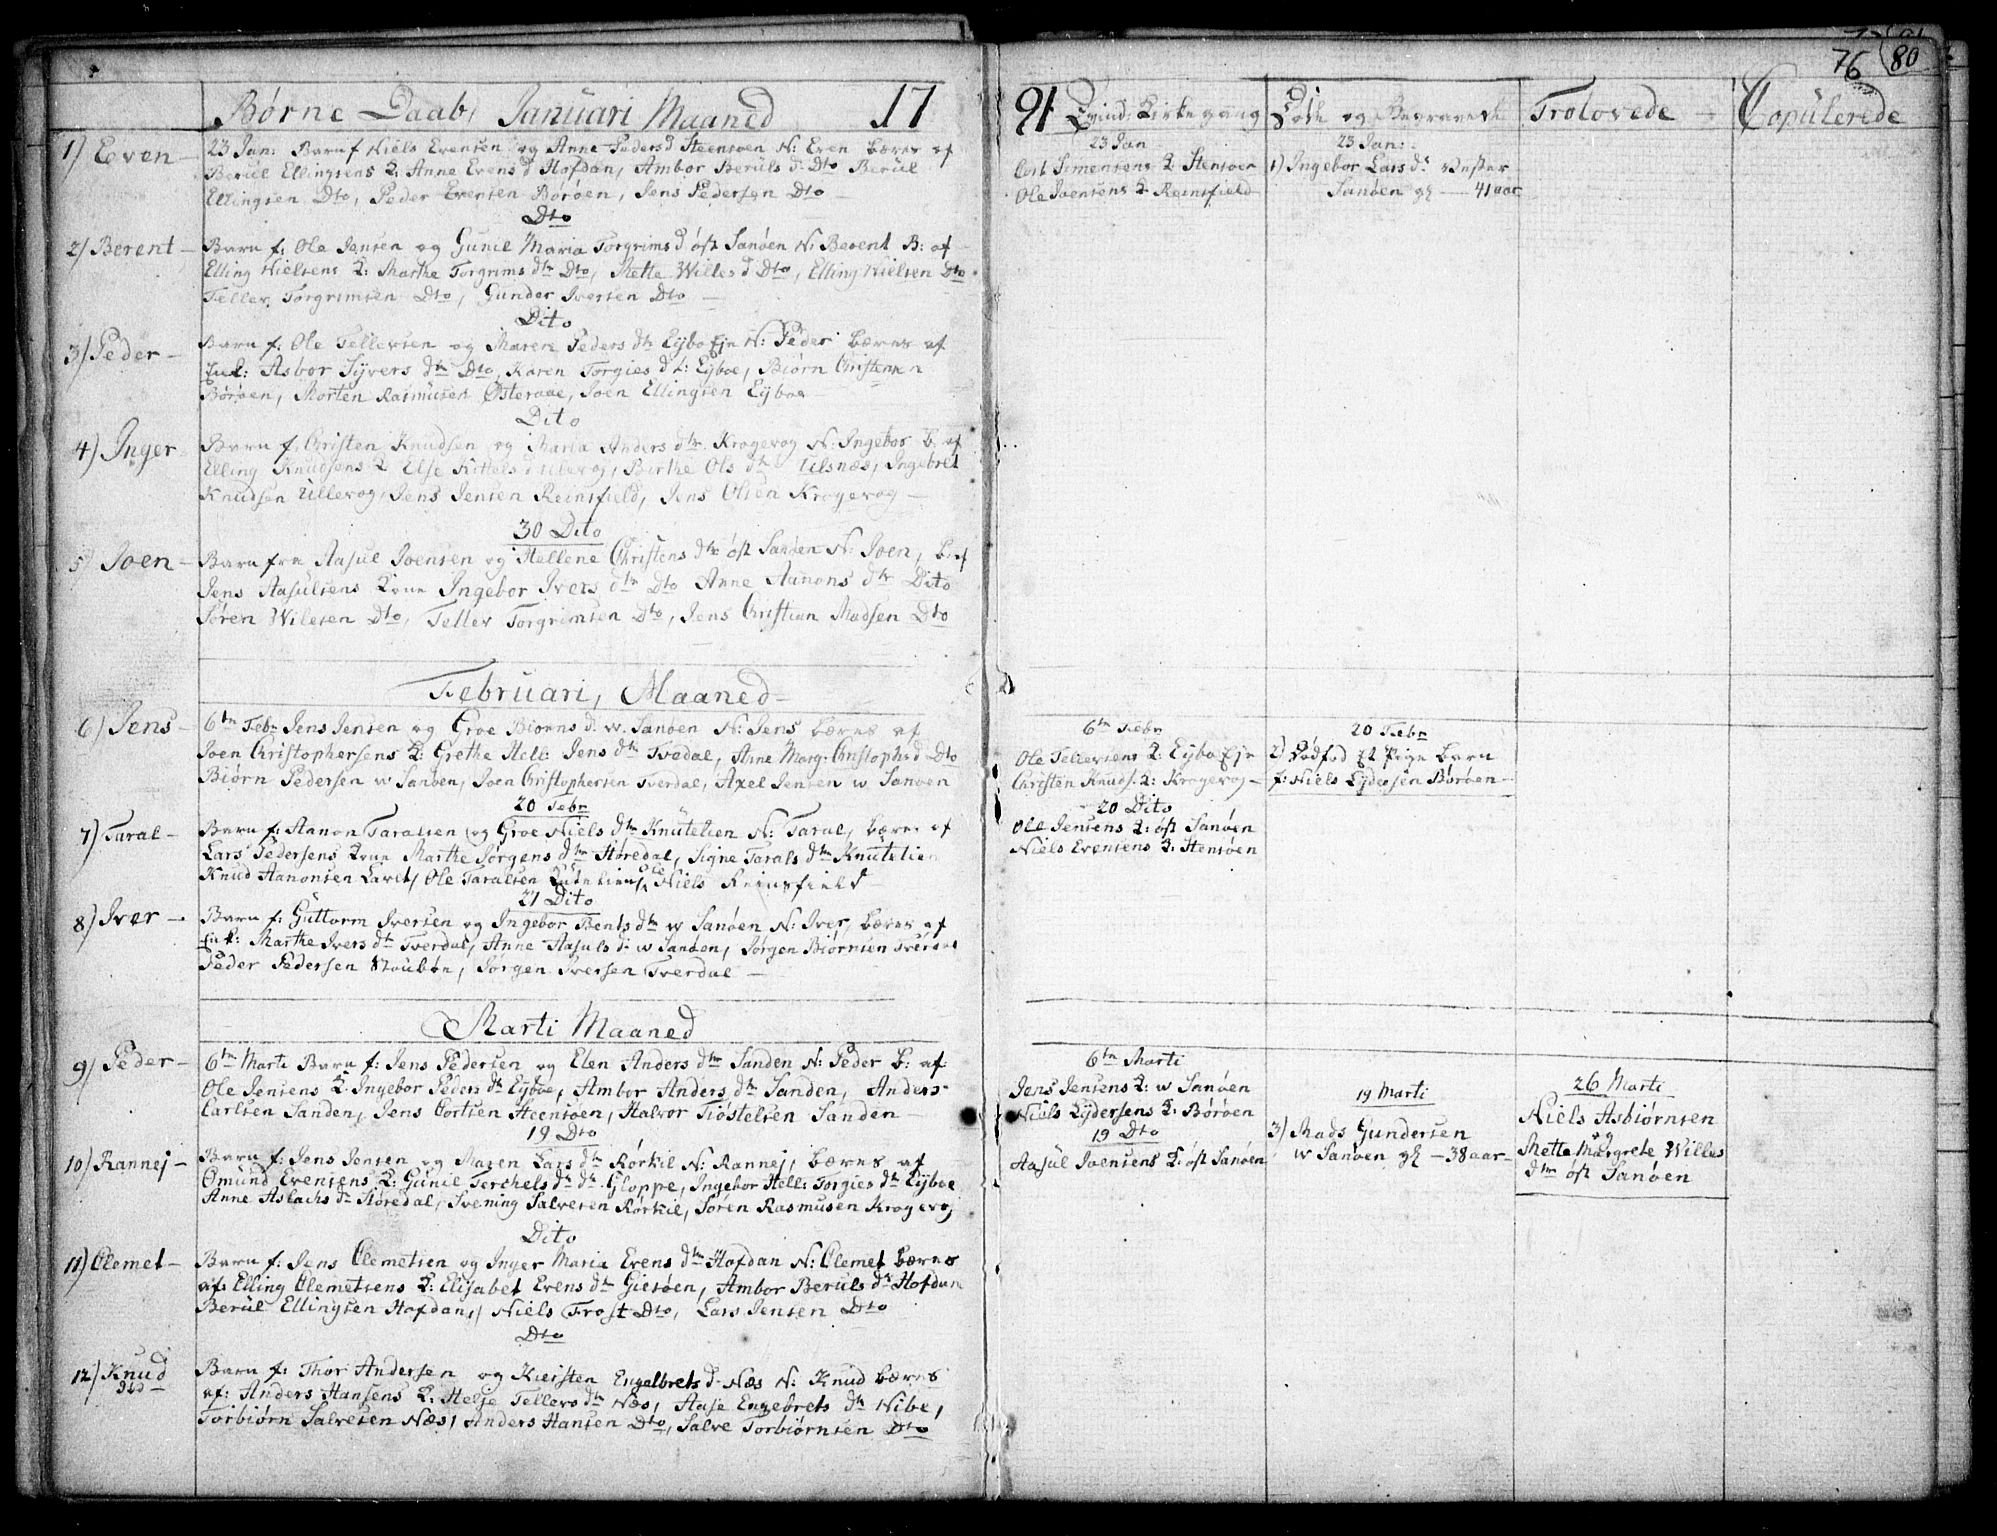 76 80
Børne Daab, Januari Maaned 17
1) Even – 23 Jan: Barn f Niels Evensen og Anne Pedersd Steensøen N: Even bæres af
Berül Ellingsens K: Anne Evens d Hofdan, Ambor Berüls d. Dto Berül
Ellingsen Dto, Peder Evensen Børøen, Jens Pedersen Dto –
Dto
2) Berent – Barn f: Ole Jensen og Gunil Maria Torgrims d øst Sanøen N: Berent B: af
Elling Nielsens K: Marthe Torgrims dtr Dto, Mette Willes d Dto, Elling Nielsen Dto
Tellev Torgrimsen Dto, Gunder Iversen Dto –
Dito
3) Peder – Barn f: Ole Tellevsen og Maren Peders dtr Eyboe Eje N: Peder bæres af
Enk: Asbor Syvers dtr Dto, Karen Torgies dt: Eyboe, Biørn Christensen
Børøen, Morten Rasmusen Østeraae, Joen Ellingsen Eyboe
Dito
4) Inger Barn f. Christen Knudsen og Maria Anders dtr. Krogevog N: Ingebor b. af
Elling Knudsens K Else Kittels d Ullevog, Birthe Ols dtr Ulsnæs, Ingebret
Knudsen Ullevog, Jens Jensen Reinsfield, Jens Olsen Krogevog –
30 Dito
5) Joen – Barn fra Aasul Joensen og Hellene Christens dtr øst Sanøen N: Joen, b: af
Jens Aasulsens Kone Ingebor Ivers dtr Dto Anne Aanons dtr Dito
Søren Wilesen Dto, Tellev Torgrimsen Dto, Jens Christian Madsen Dto
Februari, Maaned –
6) Jens – 6tn Febr Jens Jensen og Groe Biørns d. w. Sanøen N: Jens bæres af
Joen Christophersens K: Grethe Hell: Jens dtr Tvedal, Anne Marg: Christophs d Dto
Biørn Pedersen w Sanøen, Joen Christophersen Tverdal, Axel Jensen w Sanøen
20 Febr
7) Taral – Barn f: Aanon Taralsen og Groe Niels dtr Knutelien N: Taral, bæres af
Lars Pedersens Kone Marthe Jørgens dtr Støredal, Signe Tarals dtr Knutelien
Knud Aanonsen Lavet, Ole Taralsen Knutelien, Niels Reinsfield –
21 Dito
8) Iver – Barn f: Guttorm Iversen og Ingebor Bents dtr w Sanøen N: Iver, bæres af
Enk: Marthe Ivers dtr Tverdal, Anne Aasuls d. w Sanøen, Jørgen Biørnsen
Peder Pedersen Stoubøn, Jørgen Iversen Tverdal –
Marti Maaned
9) Peder – 6tn Marti Barn f: Jens Pedersen og Elen Anders dtr Sanden N: Peder b: af:
Ole Jensens K: Ingebor Peders dtr Eyboe, Ambor Anders dtr Sanden, Anders
Carlsen Sanden, Jens Cortsen Steensøen, Halvor Tiøstelsen Sanden
19 Dto
10) Rannej – Barn f: Jens Jensen og Maren Lars dtr Rørkil N: Rannej, bæres af
Omund Evensens K: Gunil Terchels dtr Gloppe, Ingebor Hell: Torgies dtr Eyboe
Anne Aslachs dtr Støredal, Svening Salvesen Rørkil, Søren Rasmusen Krogevog
Dito
11) Clemet – Barn f: Jens Clemetsen og Inger Maria Evens dtr Hofdan N: Clemet bæres
af: Elling Clemetsens K: Elisabet Evens dtr Giesøen, Ambor Beruls dtr Hofdan
Berül Ellingsen Hofdan, Niels Frost Dto, Lars Jensen Dto
Dto
12) Knud Barn f: Thor Andersen og Kiersten Engelbrets d. Næs N: Knud bæres
af: Anders Hansens K: Helje Tellevs dtr Næs, Aase Engebrets dtr Nibe,
Torbiørn Salvesen Næs, Anders Hansen Dto, Salve Torbiørnsen Dto
91 Qvind: Kirkegang
23 Jan
Cort Simensens K Stensøen
Ole Joensens K. Reinsfield
6tn Febr
Ole Tellevsens K: Eyboe Eje
Christen Knuds. K: Krogevog –
20 Dito
Ole Jensens K: øst Sanøen
Niels Evensens K: Stensøen
6tn Marti
Jens Jensens K: w Sanøen
Niels Eydersens K: Børøen
19 Dto
Aasul Joensens K: øst Sanøen
Døde og Begravede
23 Jan:
1) Ingebor Lars dr Vester
Sanøen gl – 41 aar
20 Febr
2) Dødfød et Pige barn
f: Niels Eydersen Børøen –
19 Marti
3) Mads Gundersen
w Sanøen gl – 38 aar –
Trolovede
26 Marti
Niels Asbiørnsen
og
Mette Margrete Willes
dtr øst Sanøen
Copülerede